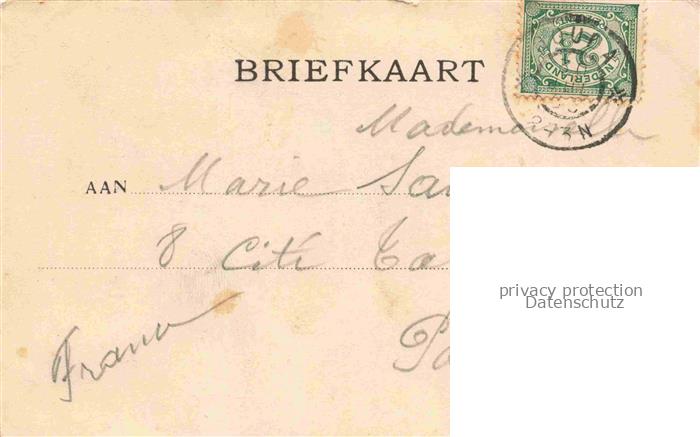 BRIEFKAART
NEDERLAND
2-3N
Mademoiselle
AAN Marie
8 Cité
France
privacy protection
Datenschutz